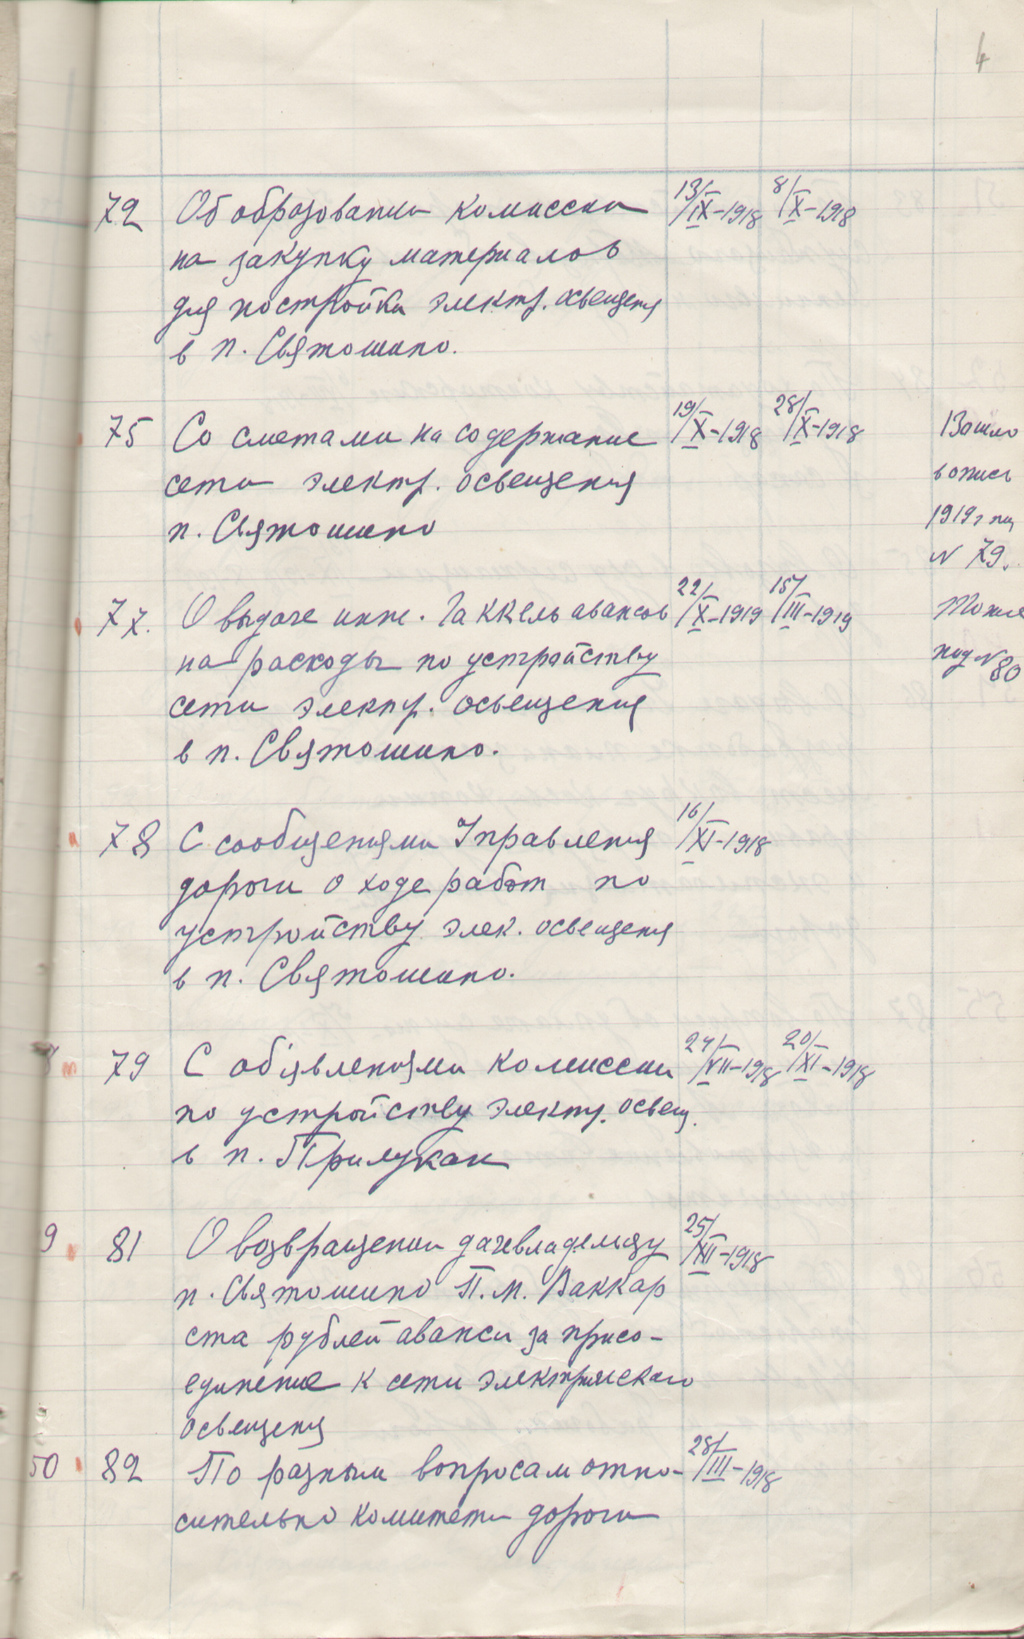 4
72 Об образовании комиссии 13/IX-1918 8/X-1918
на закупку материалов
для постройки электр. освещения
в п. Святошино.
75 Со сметами на содержание 19/X-1918 28/X-1918 Вошло
сети электр. освещения в опись
п. Святошино 1919 г под
N 79.
77. О выдаче инж. Гаккель авансов 22/X-1919 15/III-1919 Тоже
на расходы по устройству под N 80
сети электр. освещения
в п. Святошино.
78 С сообщениями Управления 16/XI-1918
дороги о ходе работ по
устройству элек. освещения
в п. Святошино.
79 С об'явлениями комиссии 24/VII-1918 20/XI-1918
по устройству электр. освещ.
в п. Прилуках
9 81 О возвращении дачевладельцу 25/XII-1918
п. Святошино П. М. Ваккар
ста рублей аванса за присо-
единение к сети электрического
освещения
50 82 По разным вопросам отно- 28/III-1918
сительно комитета дороги